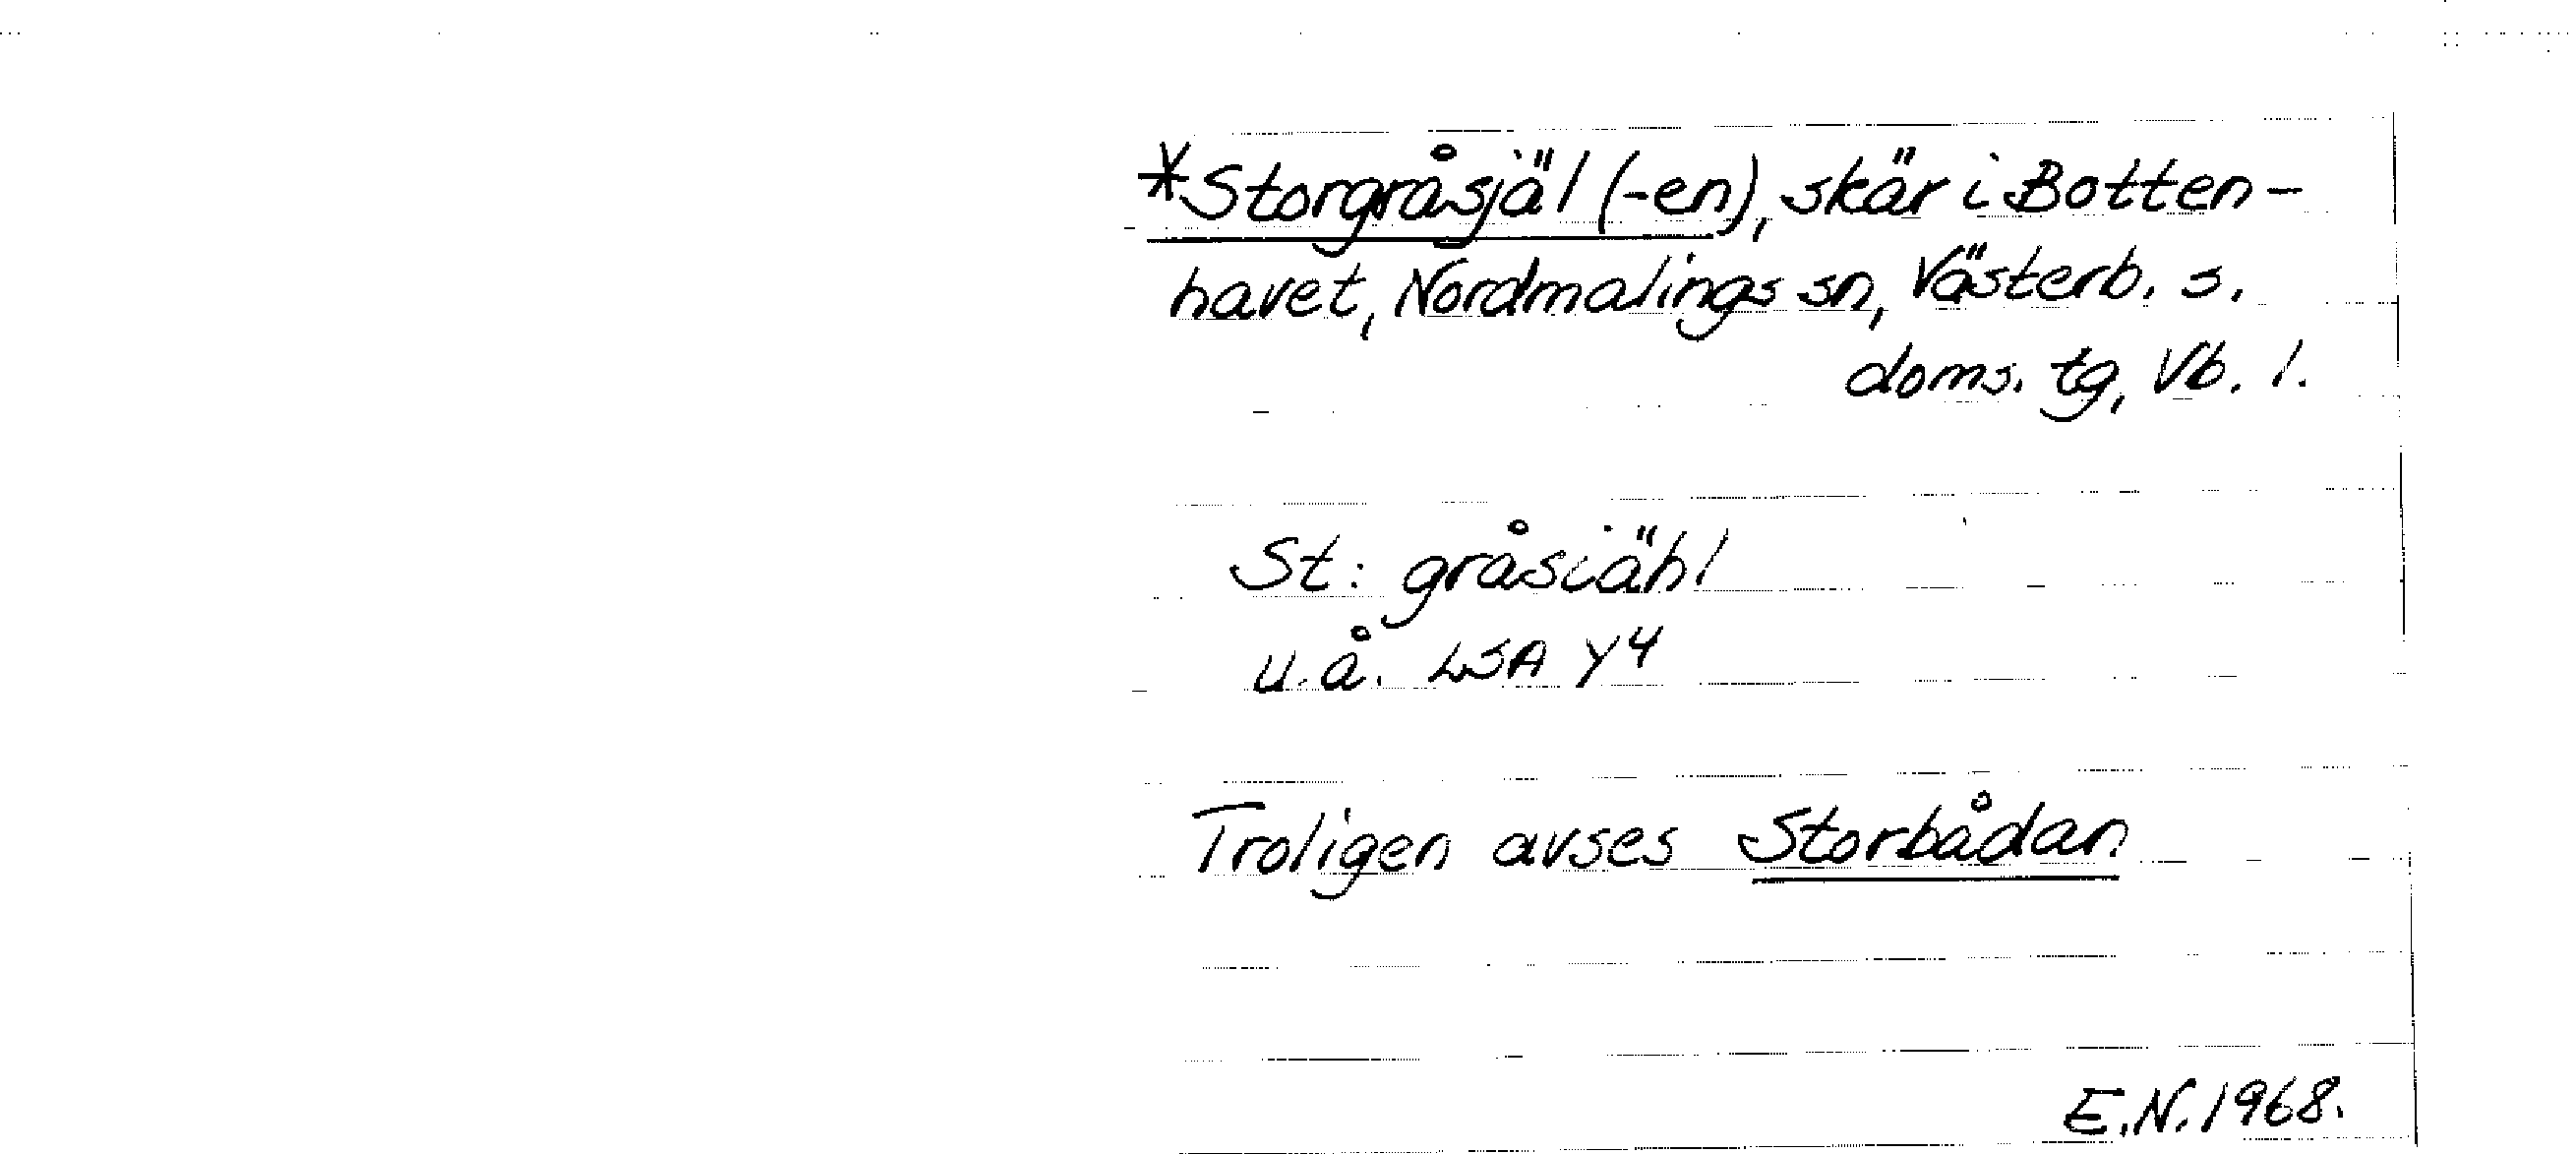 *Storgråsjäl (-en), skär i Botten-
havet, Nordmalings sn, Västerb. s.
doms. tg, Vb. l.
St: gråsiähl
u.å. LSA Y4
Troligen avses Storbådan
E.N. 1968.